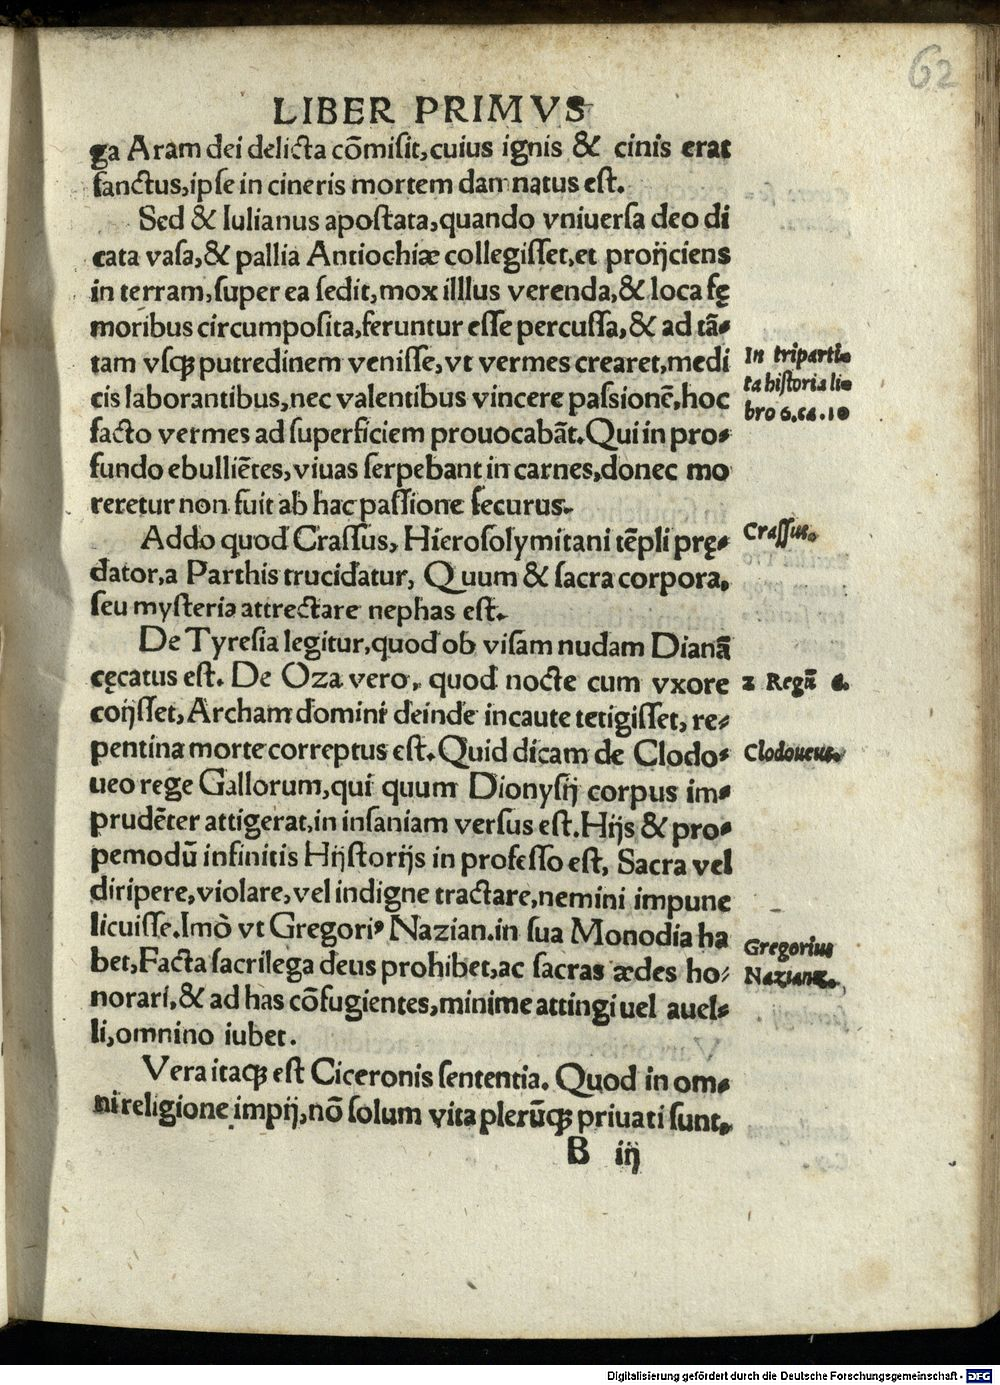 62
LIBER PRIMVS
ga Aram dei delicta cōmisit, cuius ignis & cinis erat
sanctus, ipse in cineris mortem damnatus est.
Sed & Iulianus apostata, quando vniuersa deo di
cata vasa, & pallia Antiochiæ collegisset, et proijciens
in terram, super ea sedit, mox illlus verenda, & loca fę
moribus circumposita, feruntur esse percussa, & ad tā-
tam vsq; putredinem venisse, vt vermes crearet, medi
cis laborantibus, nec valentibus vincere passionē, hoc
facto vermes ad superficiem prouocabāt. Qui in pro-
fundo ebulliētes, viuas serpebant in carnes, donec mo
reretur non fuit ab hac passione securus.
In triparti-
ta historia li-
bro 6. ca. 10
Addo quod Crassus, Hierosolymitani tēpli prę-
dator, a Parthis trucidatur, Quum & sacra corpora,
seu mysteria attrectare nephas est.
Crassus.
De Tyresia legitur, quod ob visam nudam Dianā
cęcatus est. De Oza vero, quod nocte cum vxore
coijsset, Archam domini deinde incaute tetigisset, re-
pentina morte correptus est. Quid dicam de Clodo-
ueo rege Gallorum, qui quum Dionysij corpus im-
prudēter attigerat, in insaniam versus est. Hijs & pro-
pemodū infinitis Hijstorijs in professo est, Sacra vel
diripere, violare, vel indigne tractare, nemini impune
licuisse. Imò vt Gregoriꝰ Nazian. in sua Monodia ha
bet, Facta sacrilega deus prohibet, ac sacras ædes ho-
norari, & ad has cōfugientes, minime attingi uel auel-
li, omnino iubet.
2 Regū 6.
Clodoueus.
Gregorius
Nazianz.
Vera itaq; est Ciceronis sententia. Quod in om-
ni religione impij, nō solum vita plerūq; priuati sunt,
B iij
Digitalisierung gefördert durch die Deutsche Forschungsgemeinschaft - DFG